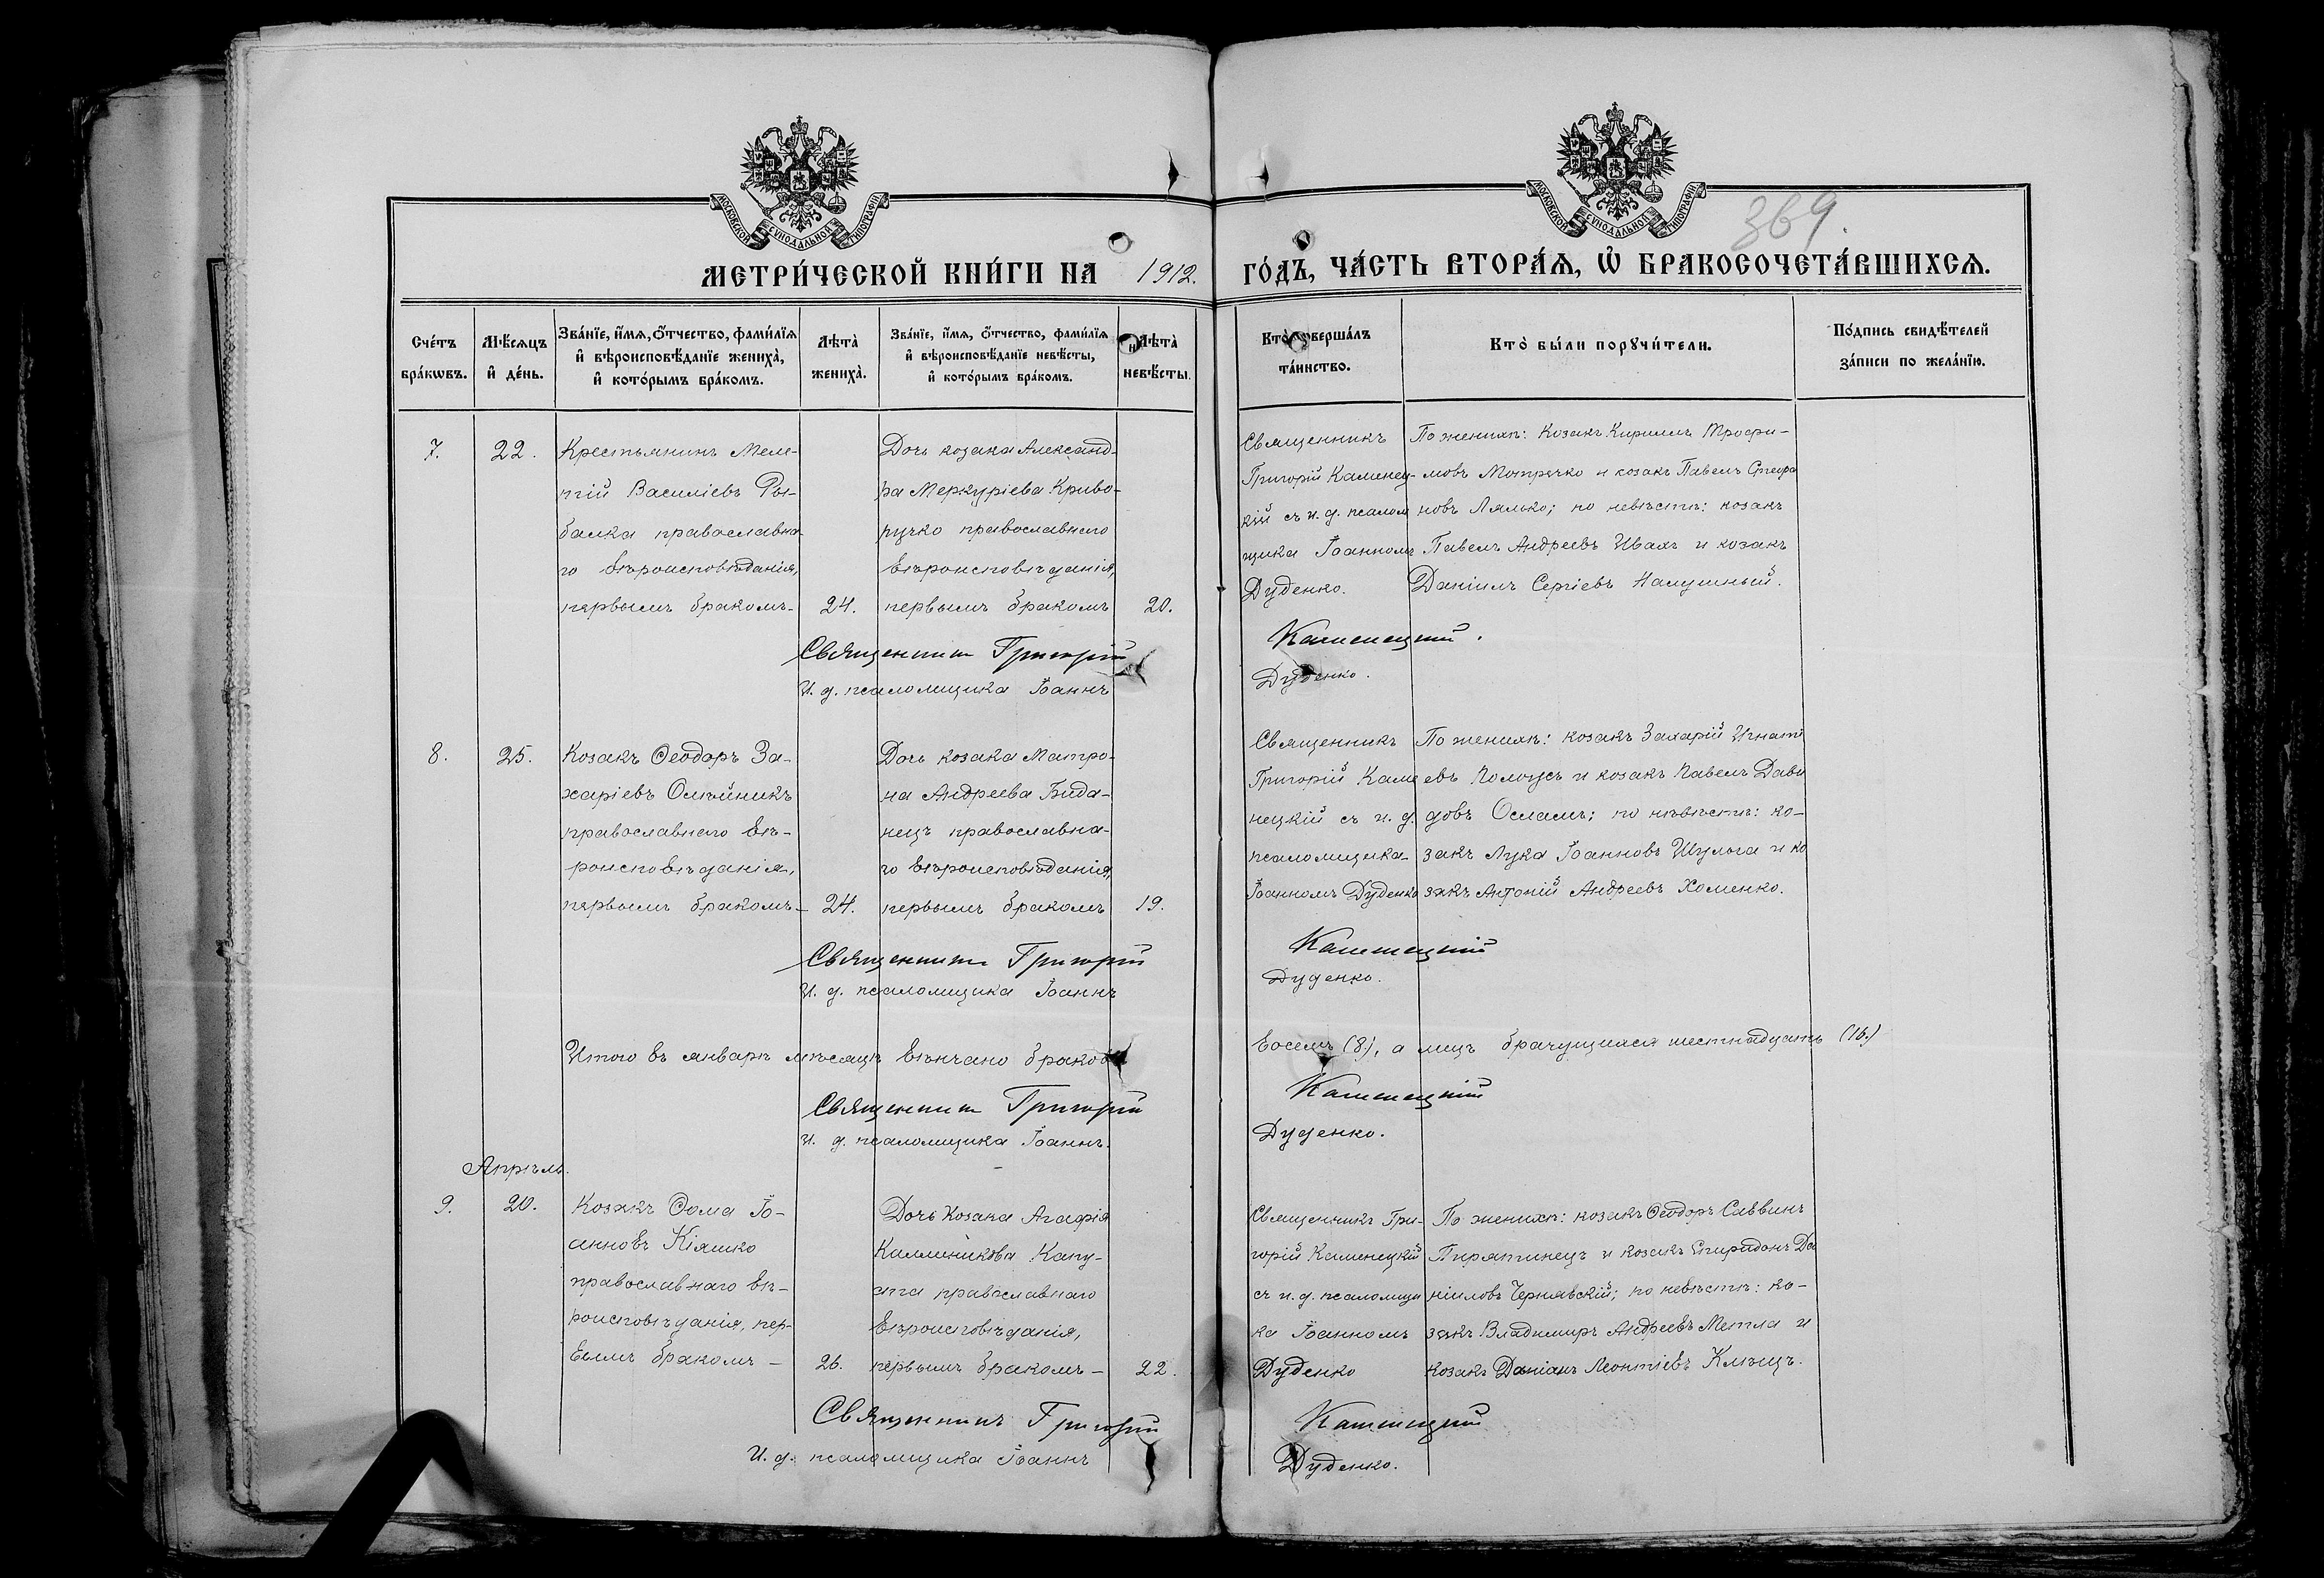 МОСКОВСКОЙ СУНОДАЛЬНОЙ ТИПОГРАФІИ
МОСКОВСКОЙ СУНОДАЛЬНОЙ ТИПОГРАФІИ
369.
МЕТРИ́ЧЕСКОЙ КНИ́ГИ НА 1912. ГО́ДЪ, ЧА́СТЬ ВТОРА́Я, Ѡ БРАКОСОЧЕТА́ВШИХСЯ.
Сче́тъ бра́кωвъ.
Мѣ́сяцъ и҆ де́нь.
Зва́нїе, и҆́мя, ѻ҆́тчество, фами́лїя
и҆ вѣроисповѣ́данїе жениха̀,
и҆ кото́рымъ бра́комъ.
Лѣта̀ жениха̀.
Зва́нїе, и҆́мя, ѻ҆́тчество, фами́лїя
и҆ вѣроисповѣ́данїе невѣ́сты,
и҆ кото́рымъ бра́комъ.
Лѣта̀ невѣ́сты.
Кто̀ соверша́лъ
та́инство.
Кто̀ бы́ли порꙋчи́тели.
По́дпись свидѣ́телей
за́писи по жела́нїю.
7.
22.
Крестьянинъ Меле-
тій Василіевъ Ры-
балка православна-
го вѣроисповѣданія,
первымъ бракомъ-
24.
Дочь козака Александ-
ра Меркуріева Криво-
ручко православнаго
вѣроисповѣданія,
первымъ бракомъ
20.
Священникъ
Григорій Каменец-
кій съ и. д. псалом
щика Іоанномъ
Дуденко.
По женихѣ: козакъ Кириллъ Трофи-
мовъ Мотречко и козакъ Павелъ Стефа
новъ Лялько; по невѣстѣ: козакъ
Павелъ Андреевъ Ивахъ и козакъ
Даніилъ Сергіевъ Налушный.
Священникъ Григорій Каменецкій.
И. д. псаломщика Іоаннъ Дуденко.
8.
25.
Козакъ Ѳеодоръ За-
харіевъ Олейникъ
православнаго вѣ-
роисповѣданія,
первымъ бракомъ-
24.
Дочь козака Матро-
на Андреева Бида-
нецъ православна-
го вѣроисповѣданія,
первымъ бракомъ
19.
Священникъ
Григорій Каме
нецкій съ и. д.
псаломщика-
Іоанномъ Дуденко
По женихѣ: козакъ Захарій Игнаті
евъ Полоусъ и козакъ Павелъ Дави
довъ Осламъ; по невѣстѣ: ко-
закъ Лука Іоанновъ Шульга и ко
закъ Антоній Андреевъ Хоменко.
Священникъ Григорій Каменецкій
И. д. псаломщика Іоаннъ Дуденко.
Итого въ январѣ мѣсяцѣ вѣнчано браковъ восемь (8), а лицъ брачущихся шестнадцать (16.)
Священникъ Григорій Каменецкій
И. д. псаломщика Іоаннъ. Дуденко.
Апрѣль.
9.
20.
Козакъ Ѳома Іо-
анновъ Кіяшко
православнаго вѣ-
роисповѣданія, пер-
вымъ бракомъ -
26.
Дочь Козака Агафія
Каллиникова Капу-
ста православнаго
вѣроисповѣданія,
первымъ бракомъ -
22.
Священникъ Гри-
горій Каменецкій
съ и. д. псаломщи
ка Іоанномъ
Дуденко
По женихѣ: козакъ Ѳеодоръ Саввинъ
Пирятинецъ и козакъ Спиридонъ Да
ніиловъ Чернявскій; по невѣстѣ: ко-
закъ Владимиръ Андреевъ Метла и
козакъ Даміанъ Леонтіевъ Клѣщъ.
Священникъ Григорій Каменецкій
И. д. псаломщика Іоаннъ Дуденко.